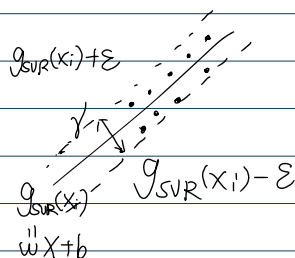 g_SVR(x_i)+ε
γ
g_SVR(x_i)-ε
g_SVR(x_i)
"
wx+b